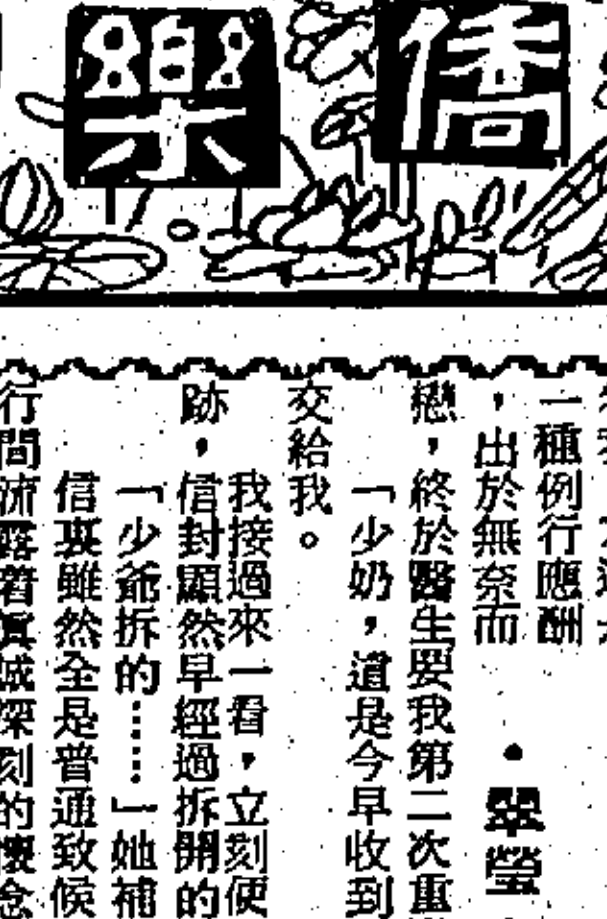 僑樂
一種例行應酬
，出於無奈而
•翠瑩
戀，終於醫生要我第二次重
「少奶，這是今早收到
交給我。
我接過來一看，立刻便
跡，信封顯然早經過拆開的
「少爺拆的……」她補
信裏雖然全是普通致候
行間流露着真誠深刻的懷念